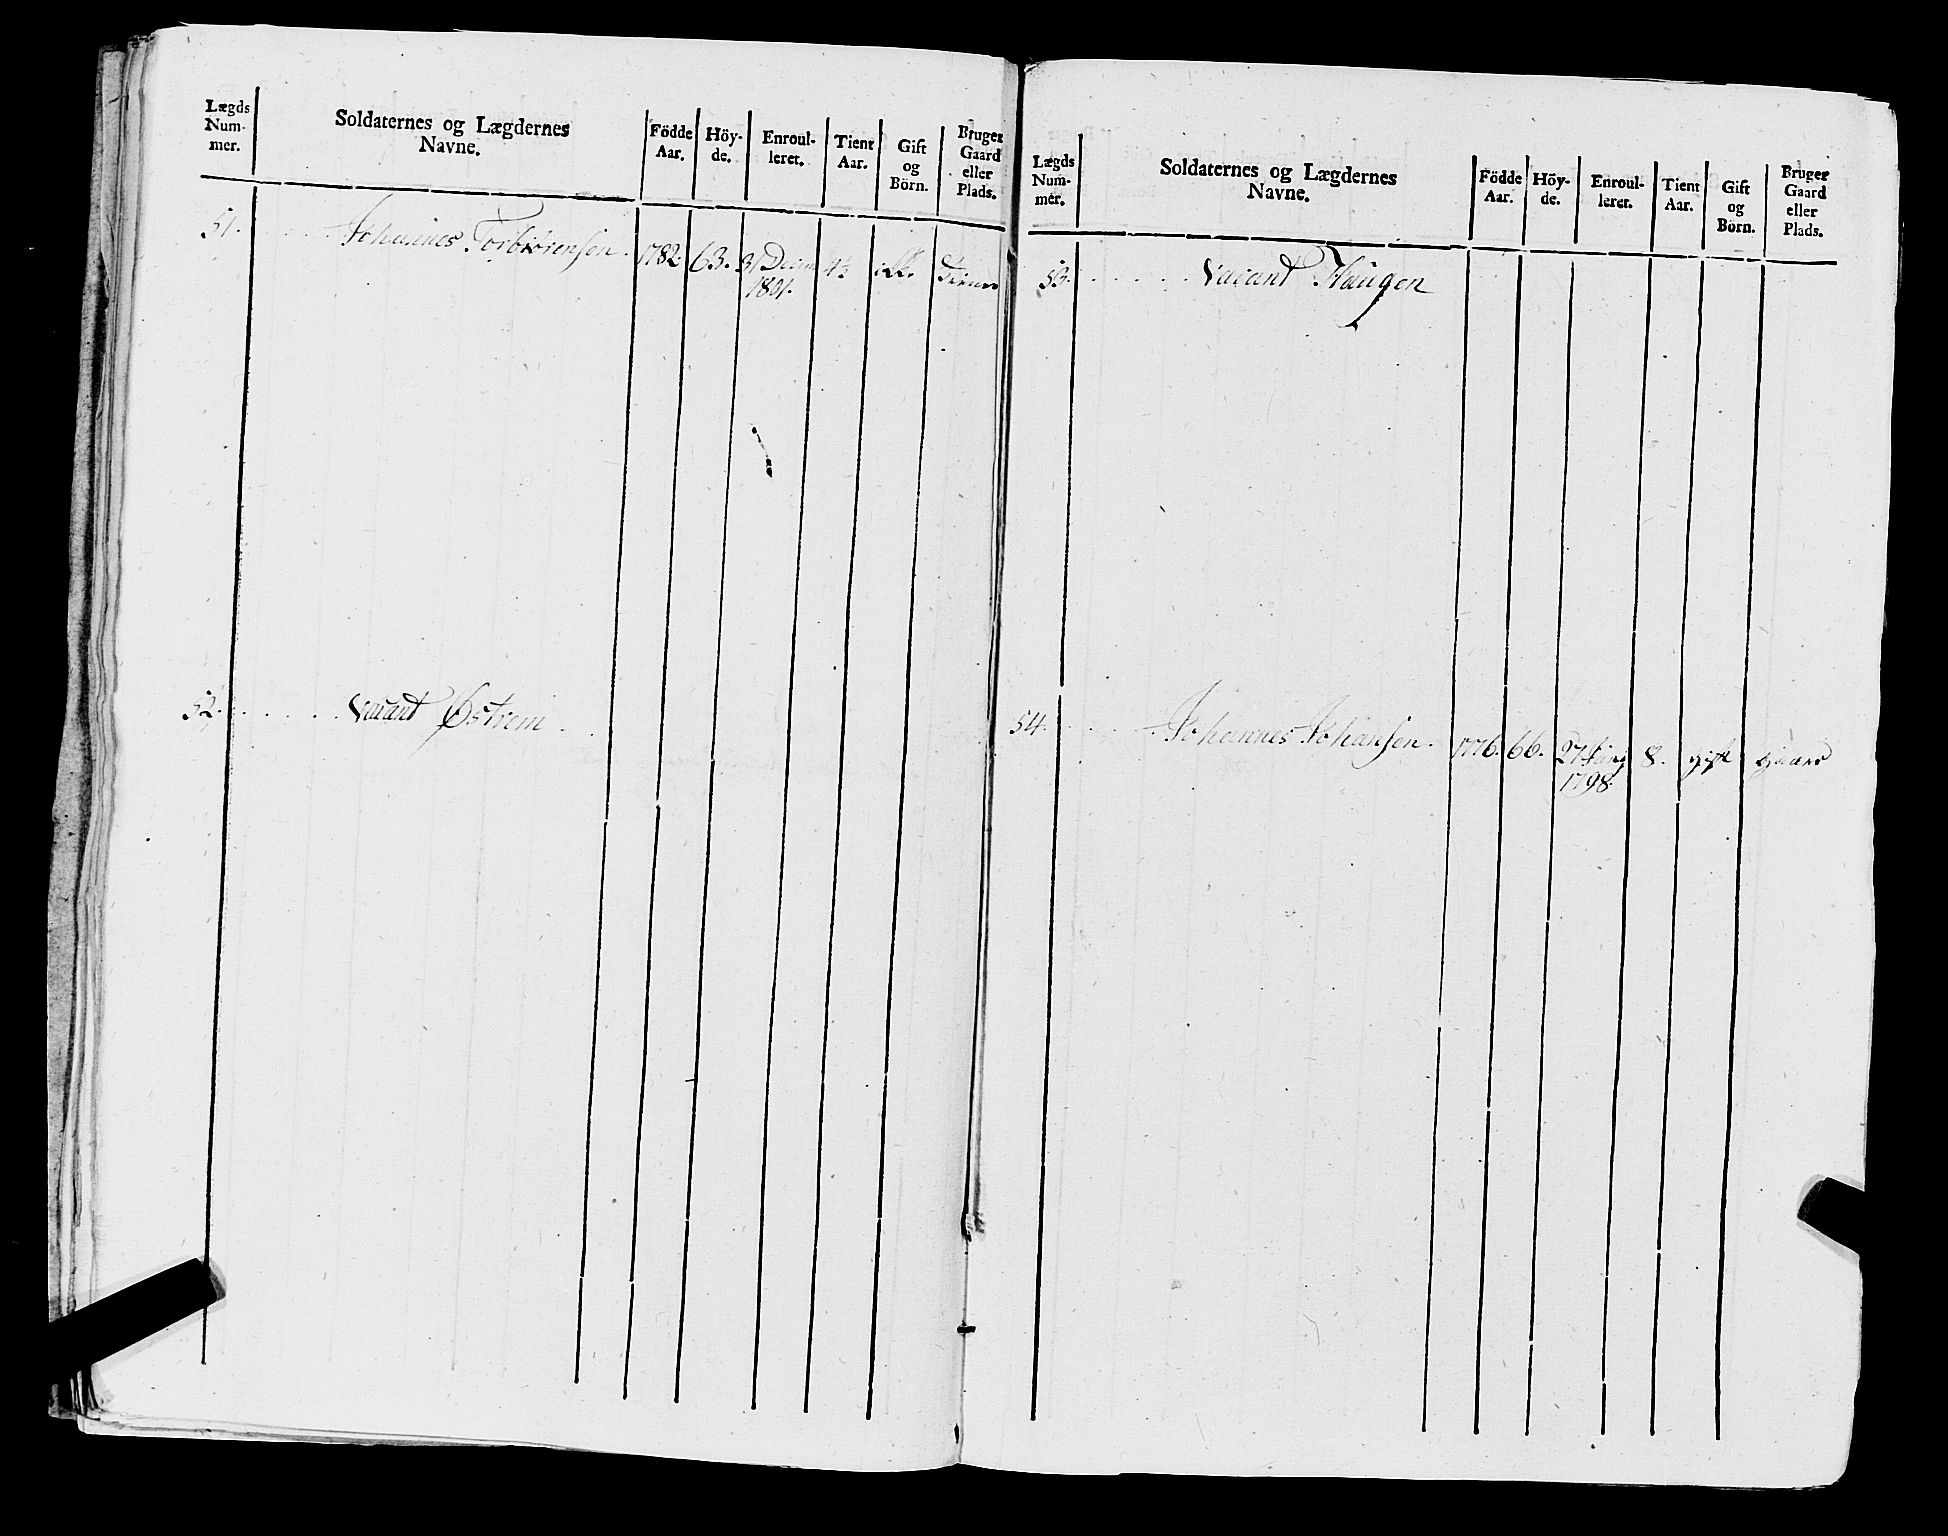 Lægds Num- mer.
Soldaternes og Lægdernes Navne.
Födde Aar.
Höy- de.
Enroul- leret.
Tient Aar.
Gift og Börn.
Bruger Gaard eller Plads.
51. Johannes Torbiörensen. 1782. 63. 31 Decem 1801. 4½ ikke
52. Vacant Östrem
Lægds Num- mer.
Soldaternes og Lægdernes Navne.
Födde Aar.
Höy- de.
Enroul- leret.
Tient Aar.
Gift og Börn.
Bruger Gaard eller Plads.
53. Vacant Haugen
54. Johannes Johansen. 1776. 66. 27 Juny 1798. 8. gift